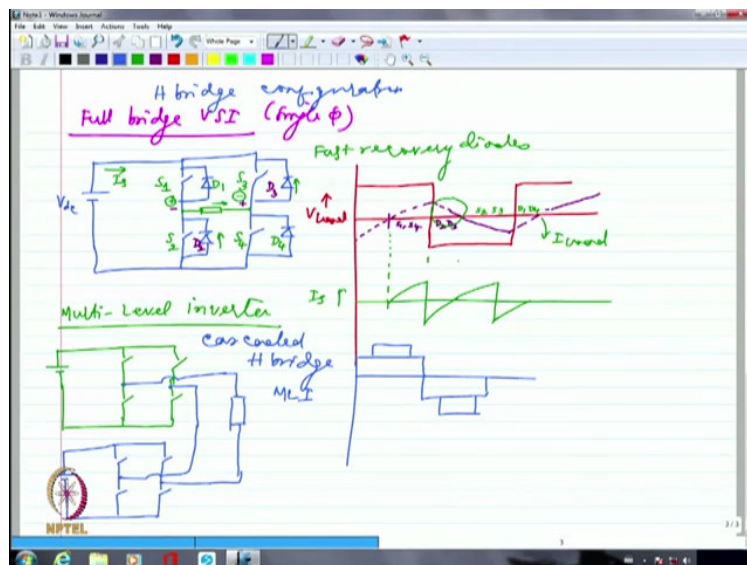 Note1 - Windows Journal
File Edit View Insert Actions Tools Help
Whole Page
B I
H bridge configuration
Full bridge VSI (Single Φ)
Fast recovery diodes
Is
Vdc
S1 D1 S3 D3
+ - - +
S2 D2 S4 D4
V
S1, S4 D2 D3 S2 S3 D1 D4
I
Is
Multi-Level inverter
Cascaded
H bridge
MLI
NPTEL
3/3
3